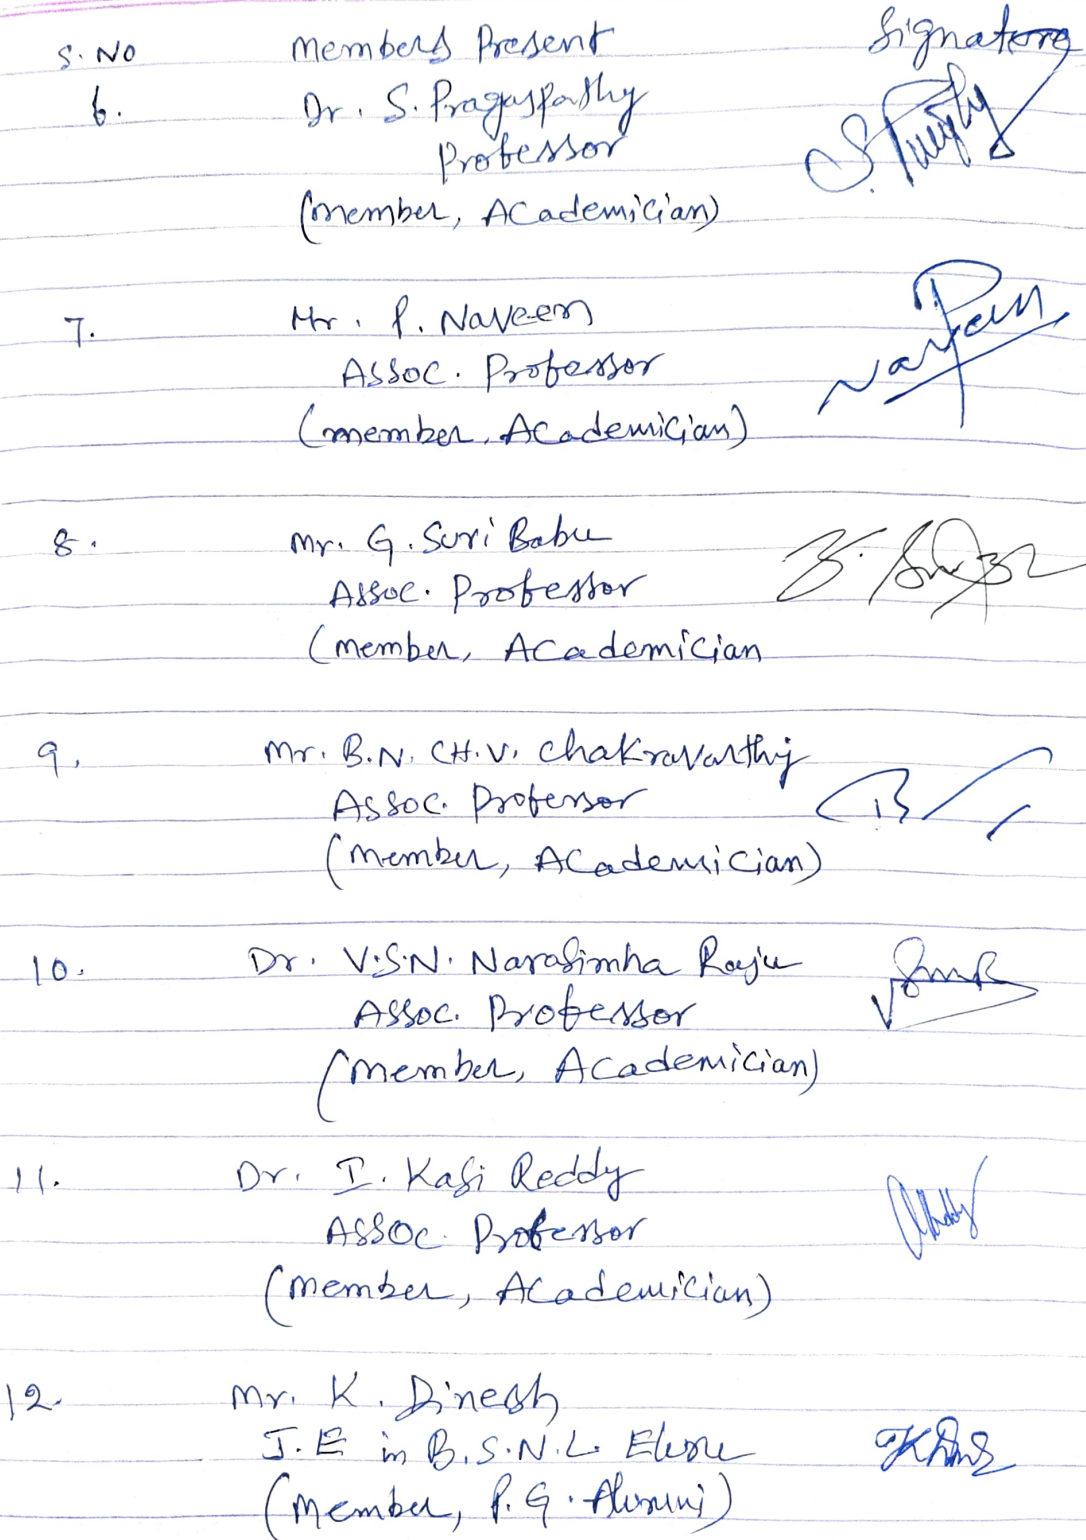 S. No Members Present Signature
6. Dr. S. Pragaspathy
Professor
(Member, Academician)
7. Mr. P. Naveen
Assoc. Professor
(Member, Academician)
Naveen
8. Mr. G. Suri Babu
Assoc. Professor
(Member, Academician
9. Mr. B.N. CH.V. Chakravarthy
Assoc. Professor
(Member, Academician)
10. Dr. V.S.N. Narasimha Raju
Assoc. Professor
(Member, Academician)
11. Dr. I. Kasi Reddy
Assoc. Professor
(Member, Academician)
12. Mr. K. Dinesh
J.E in B.S.N.L. Eluru
(Member, P.G. Alumni)